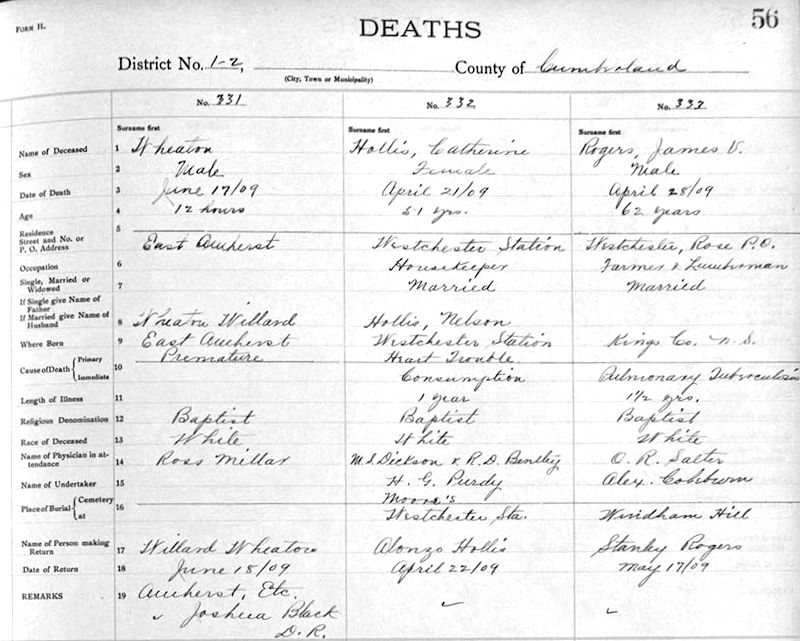 FORM H.
DEATHS
56
District No. 1-2, County of Cumberland
(City, Town or Municipality)
No. 331 No. 332 No. 333
Surname first Surname first Surname first
Name of Deceased 1 Wheaton Hollis, Catherine Rogers, James V.
Sex 2 Male Female Male
Date of Death 3 June 17/09 April 21/09 April 28/09
Age 4 12 hours 51 yrs. 62 years
Residence
Street and No. or
P. O. Address 5 East Amherst Westchester Station Westchester, Rose P.O.
Occupation 6 Housekeeper Farmer & Lumberman
Single, Married or
Widowed 7 Married Married
If Single give Name of
Father
If Married give Name of
Husband 8 Wheaton Willard Hollis, Nelson
Where Born 9 East Amherst Westchester Station Kings Co. N.S.
Cause of Death { Primary 10 Premature Heart Trouble
Immediate Consumption Pulmonary Tuberculosis
Length of Illness 11 1 year 1 1/2 yrs.
Religious Denomination 12 Baptist Baptist Baptist
Race of Deceased 13 White White White
Name of Physician in at-
tendance 14 Ross Millar M.D. Dickson & R.D. Bentley O. R. Salter
Name of Undertaker 15 H. G. Purdy Alex. Cohburn
Place of Burial { Cemetery 16 Moore's
at Westchester Sta. Windham Hill
Name of Person making
Return 17 Willard Wheaton Alonzo Hollis Stanley Rogers
Date of Return 18 June 18/09 April 22/09 May 17/09
REMARKS 19 Amherst, Etc.
✓ Joshua Black ✓ ✓
D. R.